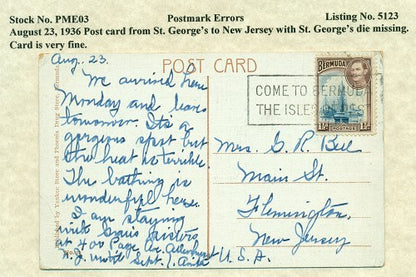 Stock No. PME03 Postmark Errors Listing No. 5123
August 23, 1936 Post card from St. George's to New Jersey with St. George's die missing.
Card is very fine.
POST CARD
Aug. 23.
We arrived here
Monday and leave
tomorrow. It's a
gorgeous spot but
the heat is terrible.
The bathing is
wonderful here.
I am staying
with sisters
at 400 Page Av.
N.J. until Sept. 1.
BERMUDA
POSTAGE
COME TO BERMUDA
THE ISLES OF REST
Mrs. G. R.
Main St.
Flemington,
New Jersey
U.S.A.